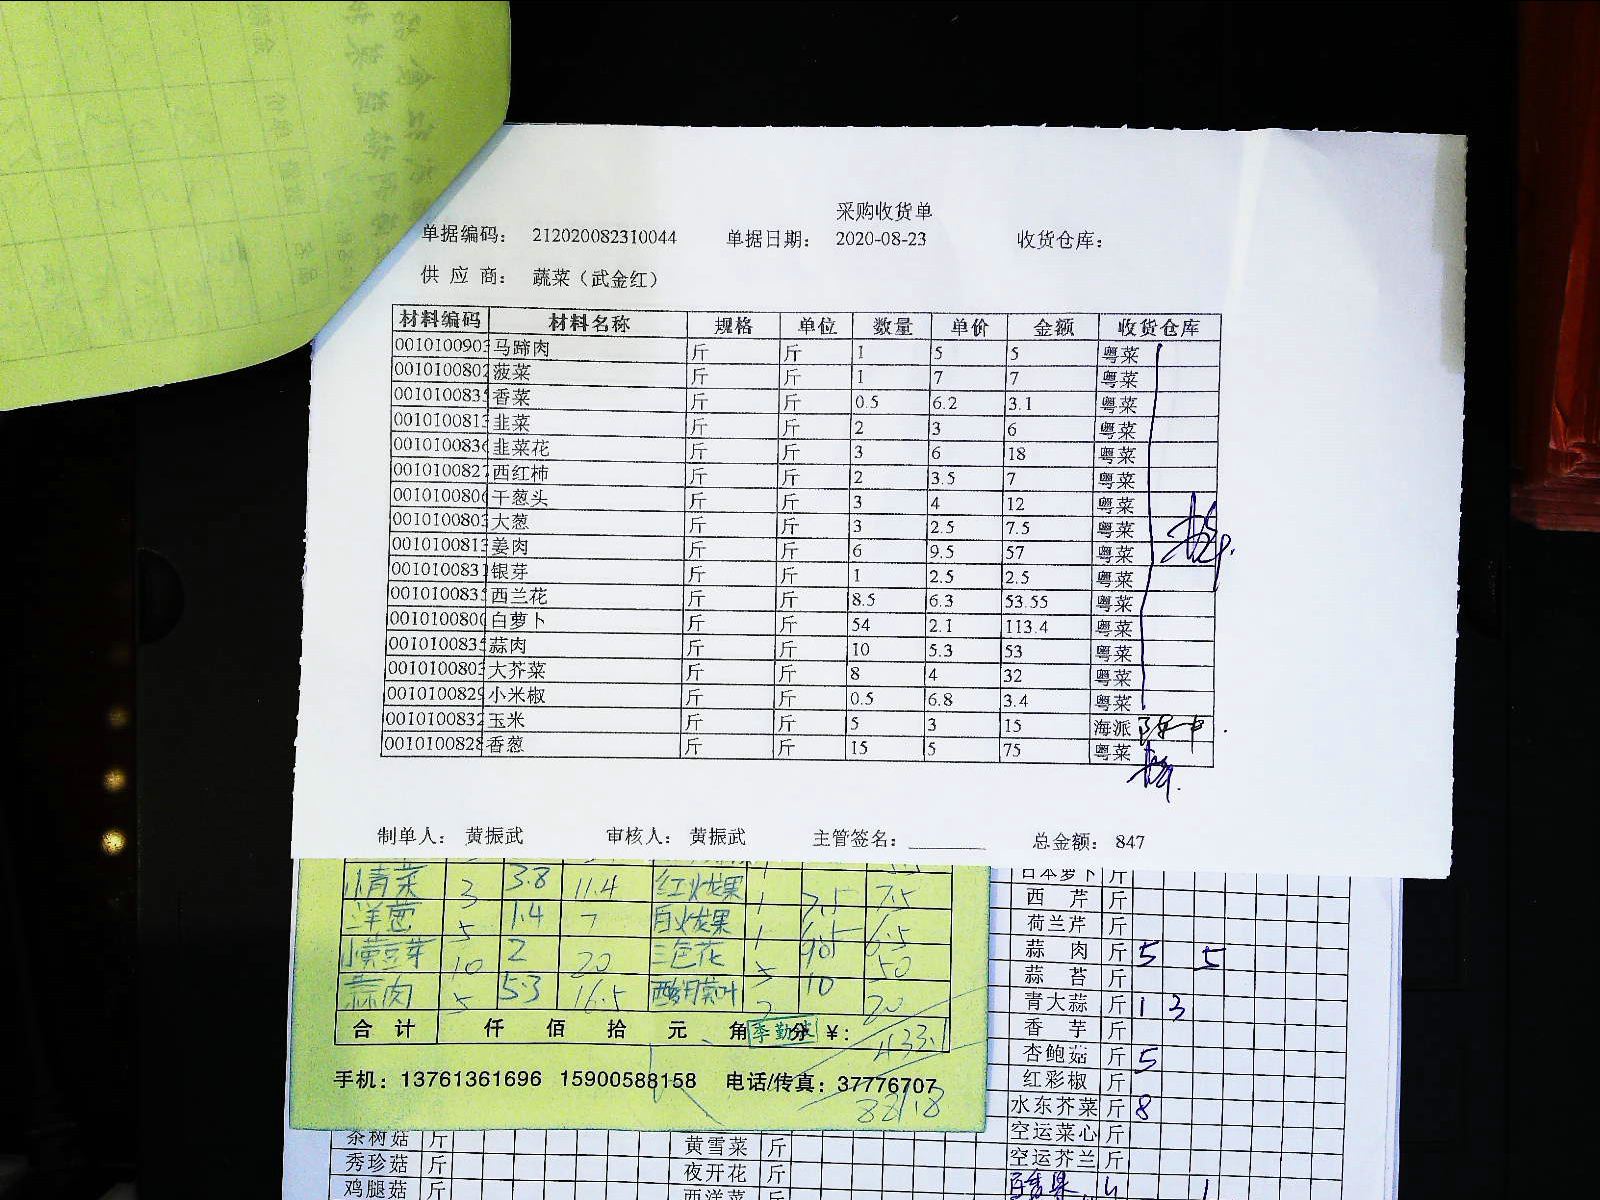 采购收货单
单据编码： 212020082310044 单据日期： 2020-08-23 收货仓库：
供 应 商： 蔬菜（武金红）
材料编码 材料名称 规格 单位 数量 单价 金额 收货仓库
0010100903 马蹄肉 斤 斤 1 5 5 粤菜
0010100802 菠菜 斤 斤 1 7 7 粤菜
0010100835 香菜 斤 斤 0.5 6.2 3.1 粤菜
0010100813 韭菜 斤 斤 2 3 6 粤菜
001010083 韭菜花 斤 斤 3 6 18 粤菜
0010100827 西红柿 斤 斤 2 3.5 7 粤菜
001010080 干葱头 斤 斤 3 4 12 粤菜
0010100803 大葱 斤 斤 3 2.5 7.5 粤菜
0010100813 姜肉 斤 斤 6 9.5 57 粤菜
0010100831 银芽 斤 斤 1 2.5 2.5 粤菜
0010100835 西兰花 斤 斤 8.5 6.3 53.55 粤菜
0010100800 白萝卜 斤 斤 54 2.1 113.4 粤菜
0010100835 蒜肉 斤 斤 10 5.3 53 粤菜
0010100803 大芥菜 斤 斤 8 4 32 粤菜
0010100829 小米椒 斤 斤 0.5 6.8 3.4 粤菜
0010100832 玉米 斤 斤 5 3 15 海派
0010100828 香葱 斤 斤 15 5 75 粤菜
制单人： 黄振武 审核人： 黄振武 主管签名： 总金额： 847
小青菜 3 3.8 11.4 红火龙果 1 7.5 7.5
洋葱 5 1.4 7 白火龙果 1 6.5 6.5
小黄豆芽 10 2 20 三色花 5 10 50
蒜肉 5 5.3 16.5 2 10 20
合 计 仟 佰 拾 元 角 分 ¥： 433.1
手机：13761361696 15900588158 电话/传真：37776707
日本萝卜 斤
西 芹 斤
荷兰芹 斤
蒜 肉 斤 5 5
蒜 苔 斤
青大蒜 斤 1 3
香 芋 斤
杏鲍菇 斤 5
红彩椒 斤
水东芥菜 斤 8
空运菜心 斤
空运芥兰 斤
茶树菇 斤 黄雪菜 斤
秀珍菇 斤 夜开花 斤
鸡腿菇 斤 西洋菜 斤